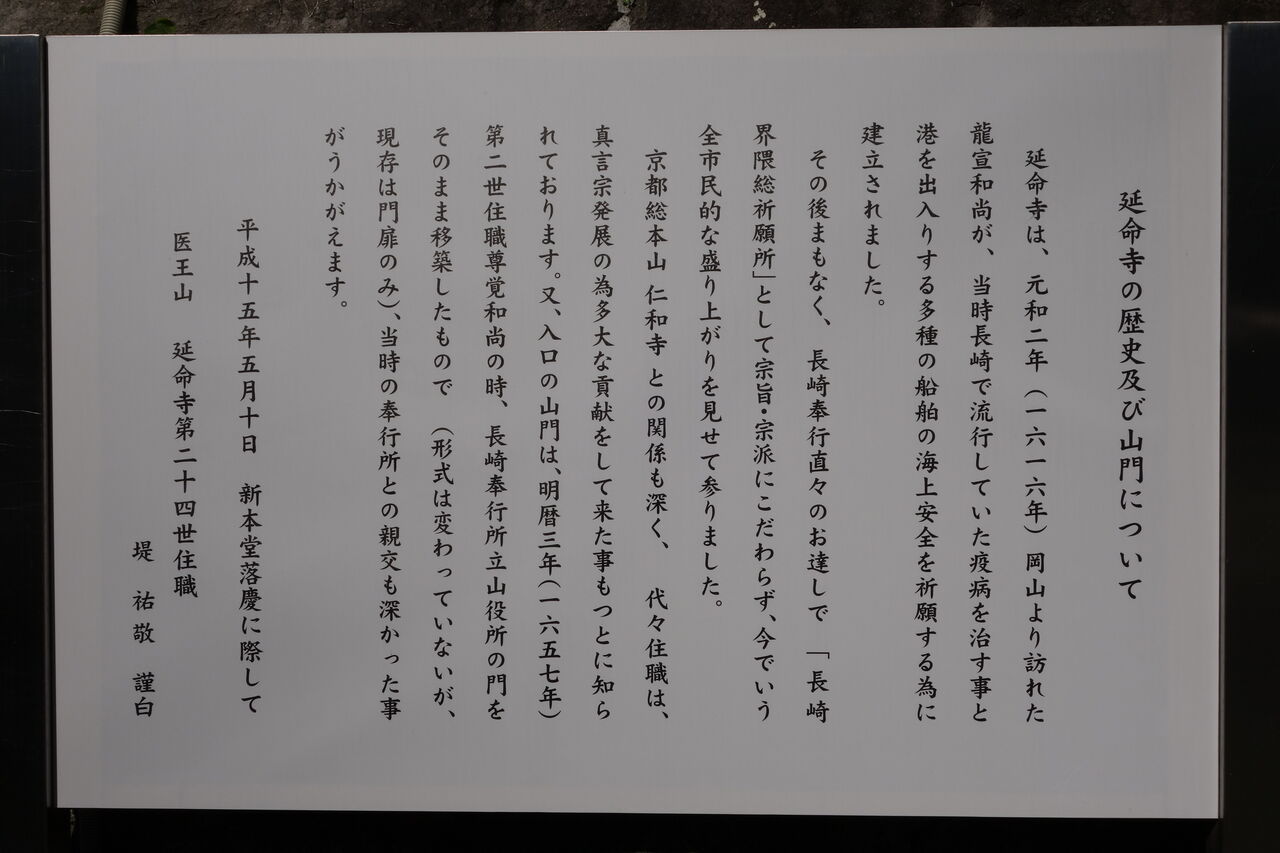 延命寺の歴史及び山門について
延命寺は、元和二年（一六一六年）岡山より訪れた
龍宣和尚が、当時長崎で流行していた疫病を治す事と
港を出入りする多種の船舶の海上安全を祈願する為に
建立されました。
その後まもなく、長崎奉行直々のお達しで「長崎
界隈総祈願所」として宗旨・宗派にこだわらず、今でいう
全市民的な盛り上がりを見せて参りました。
京都総本山 仁和寺 との関係も深く、代々住職は、
真言宗発展の為多大な貢献をして来た事もつとに知ら
れております。又、入口の山門は、明暦三年（一六五七年）
第二世住職尊覚和尚の時、長崎奉行所立山役所の門を
そのまま移築したもので（形式は変わっていないが、
現存は門扉のみ）、当時の奉行所との親交も深かった事
がうかがえます。
平成十五年五月十日 新本堂落慶に際して
医王山 延命寺第二十四世住職
堤 祐敬 謹白